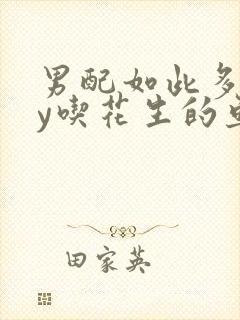 男配如此多
y喫花生的
田家英